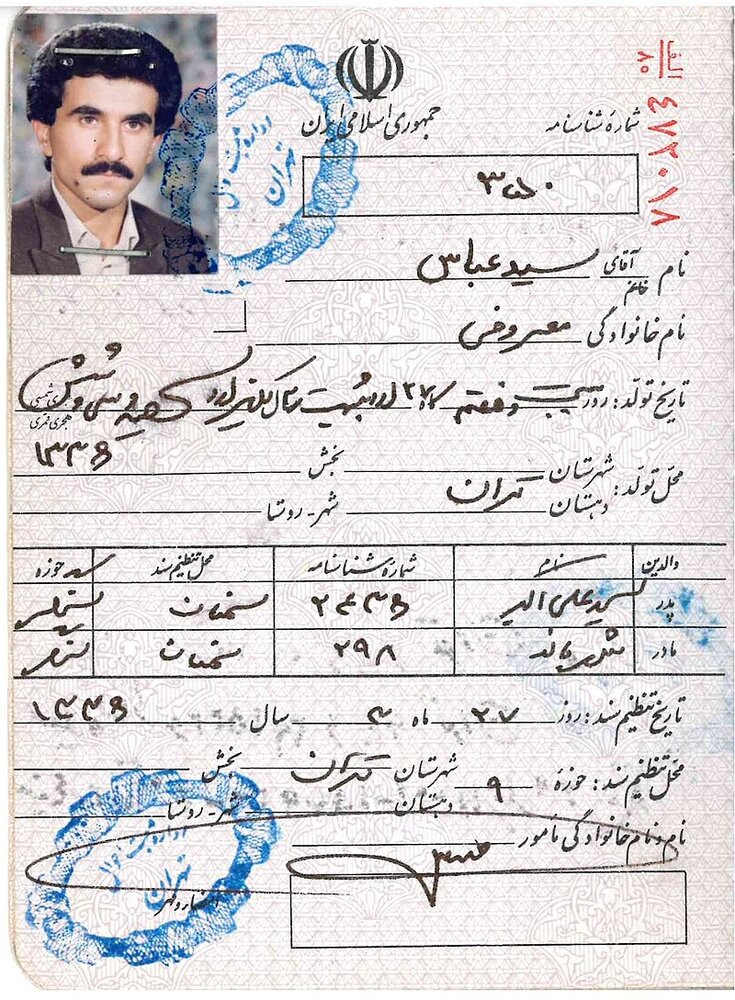 الف/۸۰ ۴۷۲۰۱۸
جمهوری اسلامی ایران
شمارهٔ شناسنامه
نام آقای خانم سید عباس
نام خانوادگی معروفی
تاریخ تولد: روز بیست و هفتم ۲۷ ماه اردیبهشت سال یکهزار و سیصد و سی و شش
هجری شمسی
هجری قمری
۱۳۳۶
محل تولد: شهرستان تهران بخش
دهستان شهر - روستا
والدین نام شمارهٔ شناسنامه محل تنظیم سند حوزه
پدر سید علی ۲۴۳۶
مادر ۲۹۸
تاریخ تنظیم سند: روز ۲۷ ماه ۳ سال ۱۳۳۶
محل تنظیم سند: حوزهٔ ۹ شهرستان تهران بخش
دهستان شهر - روستا
نام و نام خانوادگی مأمور
امضاء و مهر
اداره ثبت احوال
تهران
اداره ثبت احوال
تهران